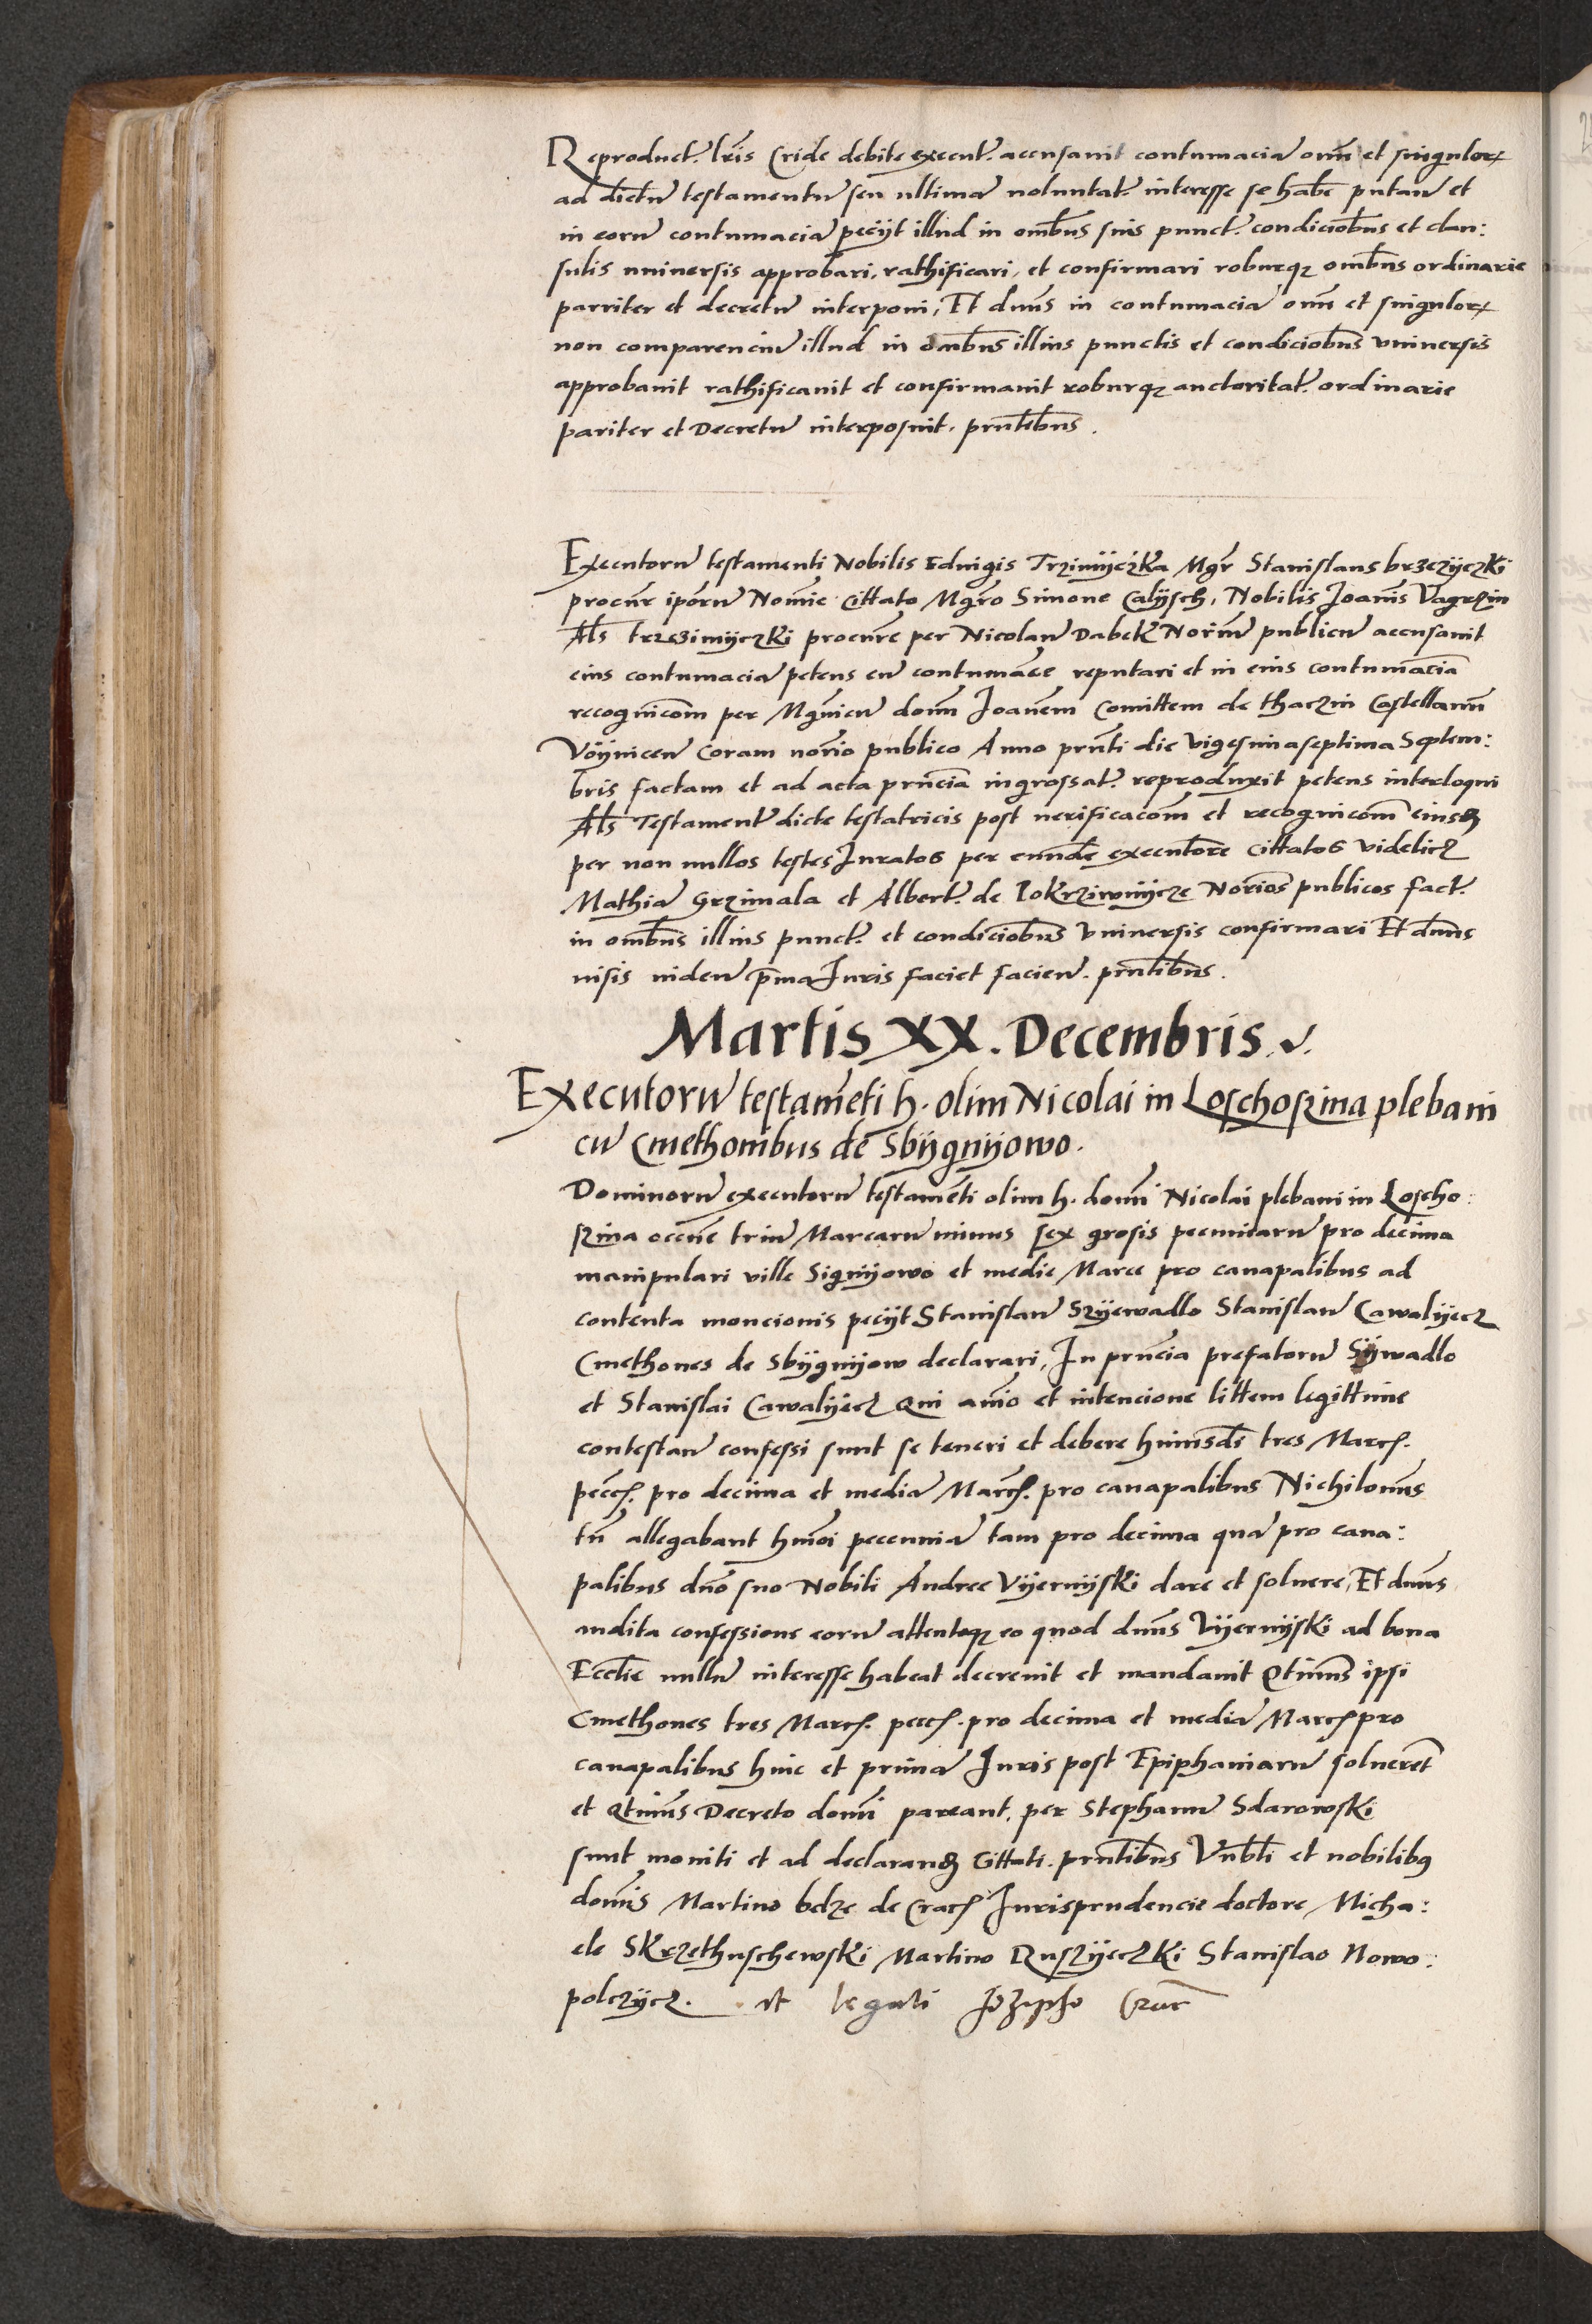 Reproduct. lris Cride debite execut. accusavit contumaciã omñ et singulor
ad dictũ testamentũ seu ultimã voluntat. interesse se habẽ putañ et
in eorũ contumaciã pecijt illud in ombus suis punct. condiciobus et clau:
sulis universis approbari, rathificari, et confirmari roburqz ombus ordinarie
parriter et decretũ interponi, Et dnus in contumaciã omñ et singulor
non comparenciũ illud in ombus illius punctis et condiciobus universis
approbavit rathificavit et confirmavit roburqz auctoritat. ordinarie
pariter et Decretũ interposuit. prntibus.
Executorũ testamenti Nobilis Edvigis Trzimijczka Mgr Stanislaus brzezijczki
procur ipõrũ Nomie Cittato Mgro Simone Calijsch, Nobilis Joannis Vagrzin
Als trzezimijczki procurẽ per Nicolaũ Dabek Noriũ publicũ accusavit
eius contumaciã petens eũ contumace reputari et in eius contumaciã
recognicom per Mgnicũ domñ Joanem Comittem de thaczin Castellanũ
Voijnicen Coram norio publico Anno prnti die vigesimaseptima Septem:
bris factam et ad acta prncia ingrossat. reproduxit petens interloqui
Als Testament dicte testatricis post verificacom et recognicom eiusd
per non nullos testes Juratos per eundẽ executore Cittatos videlicz
Mathiã Grzimala et Albert. de Pokrziwnijcze Norios publicos fact.
in ombus illius punct. et condiciobus universis confirmari Et dnus
visis videñ pma Juris faciet facien. prntibus.
Martis XX. Decembris.
Executorũ testameti h. olim Nicolai in Loschoszina plebani
cũ Cmethonibus de Sbijgnijowo.
Dominorũ executorũ testamẽti olim h. domi Nicolai plebani in Loscho:
szina occne triũ Marcarũ minus sex grosis pecuniarũ pro decima
manipulari ville Signijowo et medie Marce pro canapalibus ad
contenta moncionis pecijt Stanislaũ Szijewadlo Stanislaũ Cawalijecz
Cmethones de Sbijgnijow declarari, In prncia prefatorũ Sijwadlo
et Stanislai Cawalijecz Qui amo et intencione littem legittime
contestañ confessi sunt se teneri et debere huiusdi tres Marc.
pecc. pro decima et mediã Marc. pro canapalibus Nichilomus
tñ allegabant hmoi peccuniã tam pro decima quã pro cana:
palibus dno suo Nobili Andree Vijernijski dare et solvere, Et dnus
audita confessione eorũ attentoqz eo quod dnus Vijernijski ad bona
Ecclie nullũ interesse habeat decrevit et mandavit Qtinus ipsi
Cmethones tres Marc. pecc. pro decima et mediã Marc pro
canapalibus hinc et primã Juris post Epiphaniarũ solverent
et Qtinus Decreto domi pareant, per Stephanũ Sdarowski
sunt moniti et ad declarand Cittati. prntibus Vnbli et nobilibus
domis Martino belze de Crac Jurisprudencie doctore, Micha:
ele Skrzethuschewski Martino Ruszijeczki Stanislao Nowo:
polczijcz. et